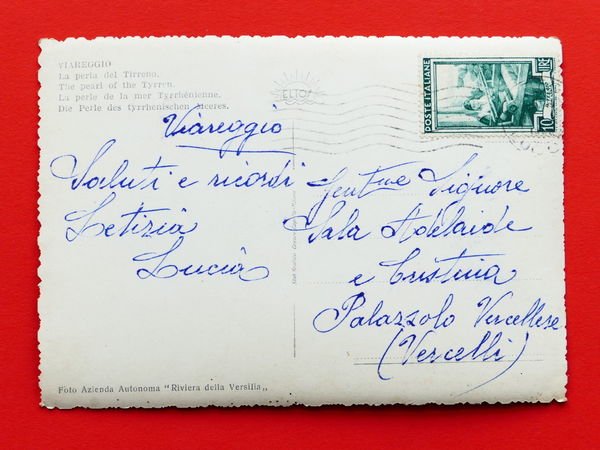 VIAREGGIO
La perla del Tirreno.
The pearl of the Tyrren.
La perle de la mer Tyrrhénienne.
Die Perle des tyrrhenischen Meeres.
ELTOS
POSTE ITALIANE
10 LIRE
Viareggio
Saluti e ricordi
Letizia
Lucia
Gent.me Signore
Sala Adelaide
e Cristina
Palazzolo Vercellese
(Vercelli)
Foto Azienda Autonoma "Riviera della Versilia"